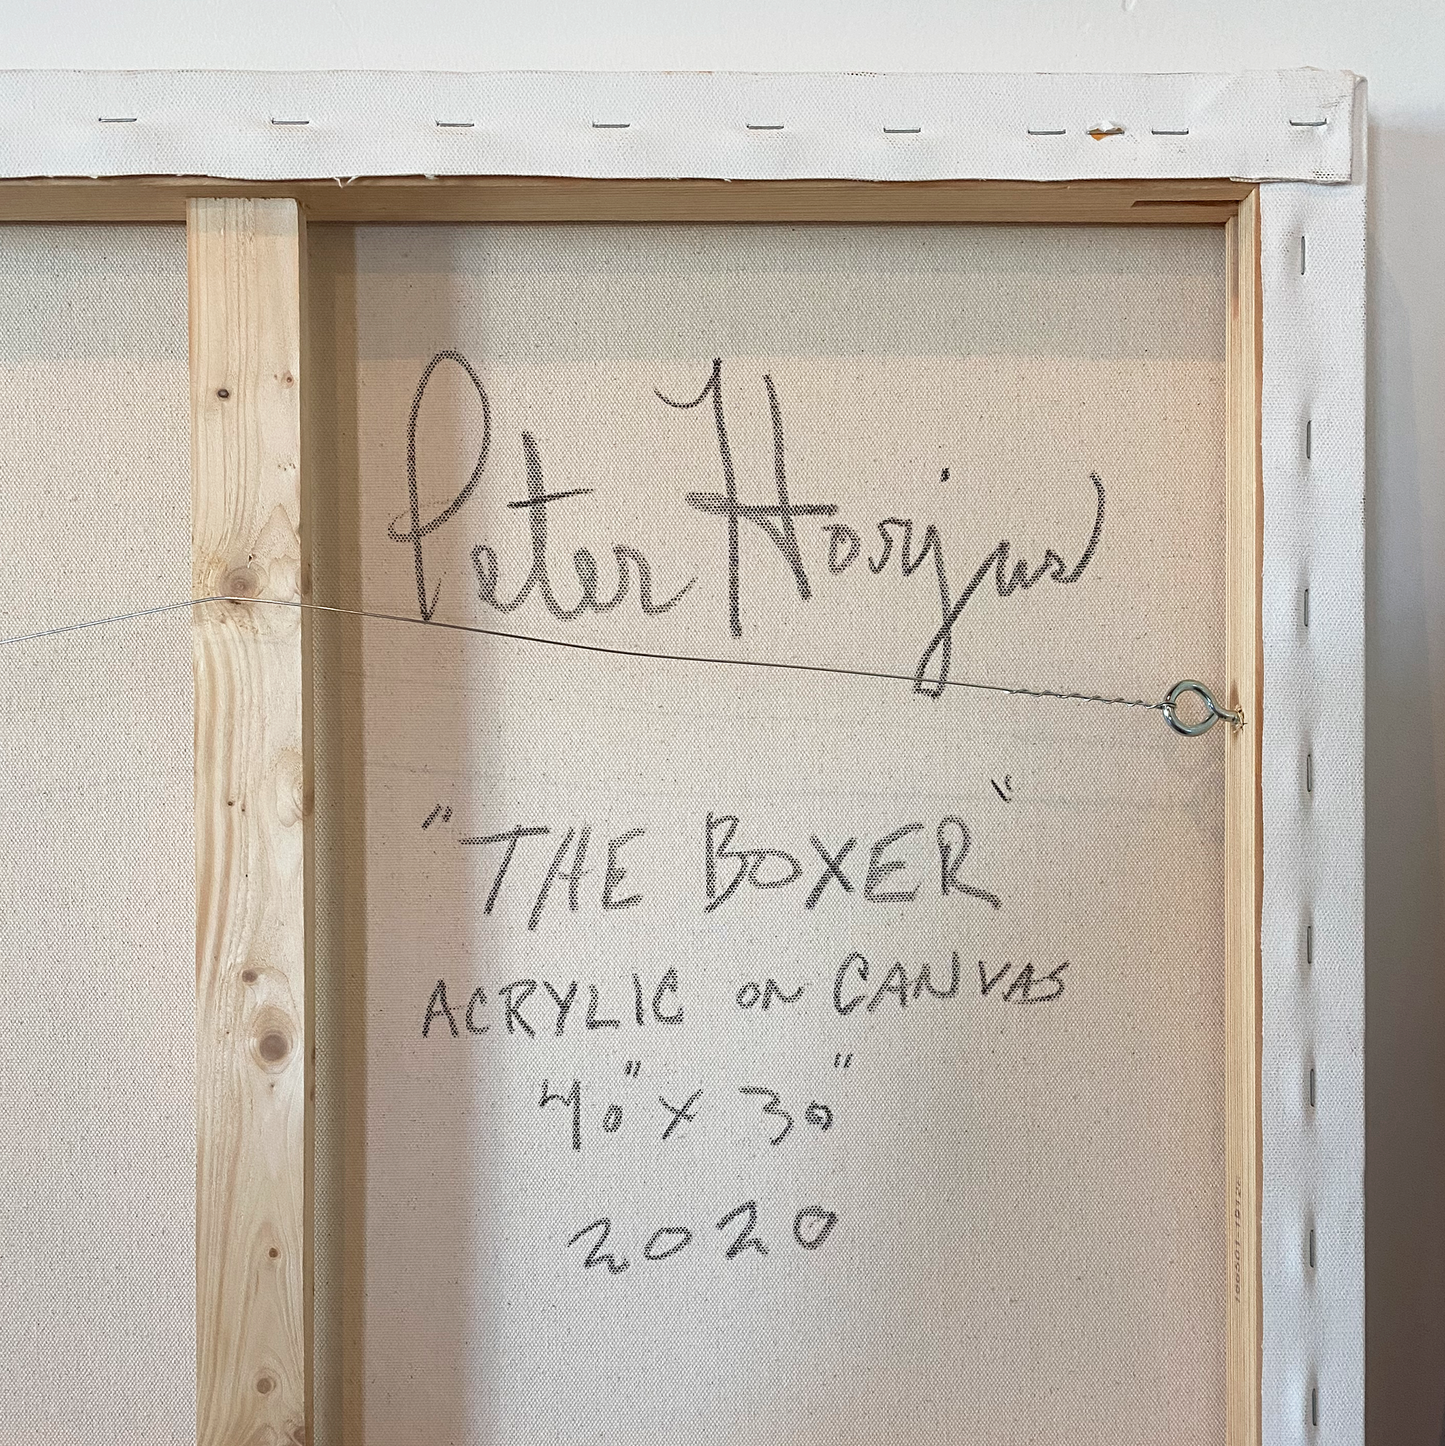 Peter Horjus
"THE BOXER"
ACRYLIC ON CANVAS
40" X 30"
2020